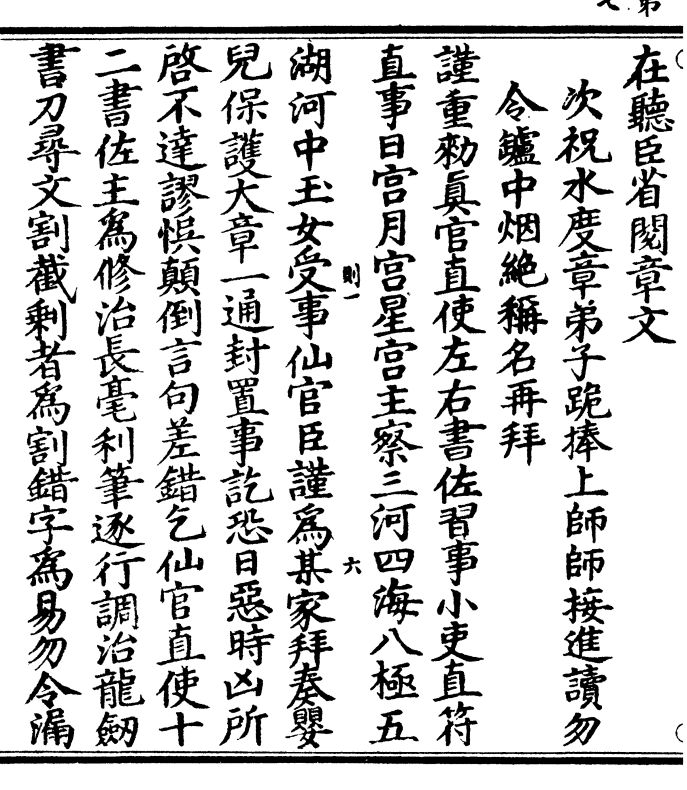 在聽臣省閱章文
次祝水度章弟子跪捧上師師接進讀勿
令鑪中烟絶稱名再拜
謹重勑眞官直使左右書佐習事小吏直符
直事日宮月宮星宮主察三河四海八極五
則一
六
湖河中玉女受事仙官臣謹爲某家拜奏嬰
兒保護大章一通封置事訖恐日惡時凶所
啓不達謬悞顛倒言句差錯乞仙官直使十
二書佐主爲修治長毫利筆逐行調治龍劒
書刀尋文割截剩者爲割錯字爲易勿令漏